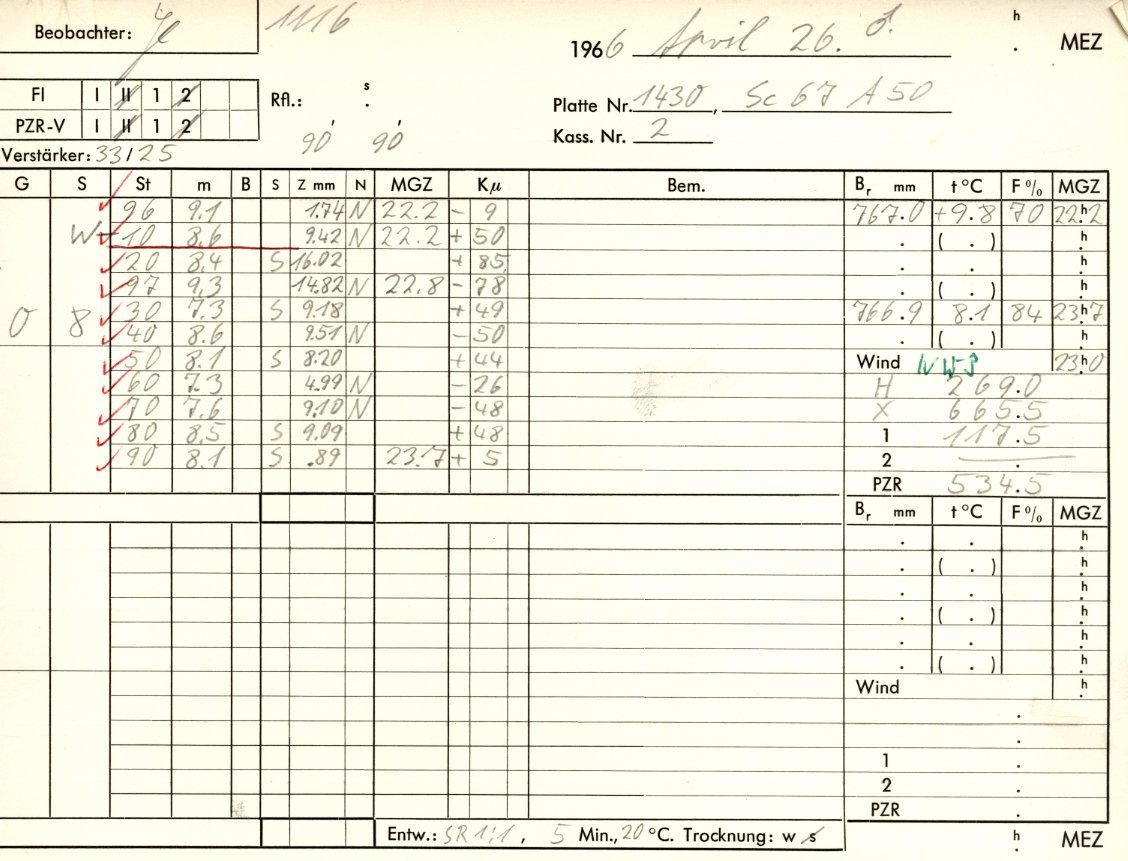 Beobachter: Je 1116
1966 April 26. h . MEZ
FI I II 1 2 Rfl.: s .
PZR-V I II 1 2 90' 90'
Platte Nr. 1430, Sc 67 A 50
Kass. Nr. 2
Verstärker: 33/25
G S St m B S Z mm N MGZ Kμ Bem. Br mm t °C F % MGZ
96 9.1 1.74 N 22.2 - 9 767.0 +9.8 70 22h2
W 10 8.6 9.42 N 22.2 + 50 . ( . ) h
20 8.4 S 16.02 + 85 . . h
97 9.3 14.82 N 22.8 - 78 . ( . ) h
0 8 30 7.3 S 9.18 + 49 766.9 8.1 84 23h7
40 8.6 9.51 N - 50 . ( . ) h
50 8.1 S 8.20 + 44 Wind 23h0
60 7.3 4.99 N - 26 H 269.0
70 7.6 9.10 N - 48 X 665.5
80 8.5 S 9.09 + 48 1 117.5
90 8.1 S .89 23.7 + 5 2 .
PZR 534.5
Br mm t °C F % MGZ
. . h
. ( . ) h
. . h
. ( . ) h
. . h
. ( . ) h
Wind h
.
.
1 .
2 .
PZR .
Entw.: SR 1:1, 5 Min., 20 °C. Trocknung: w s h . MEZ